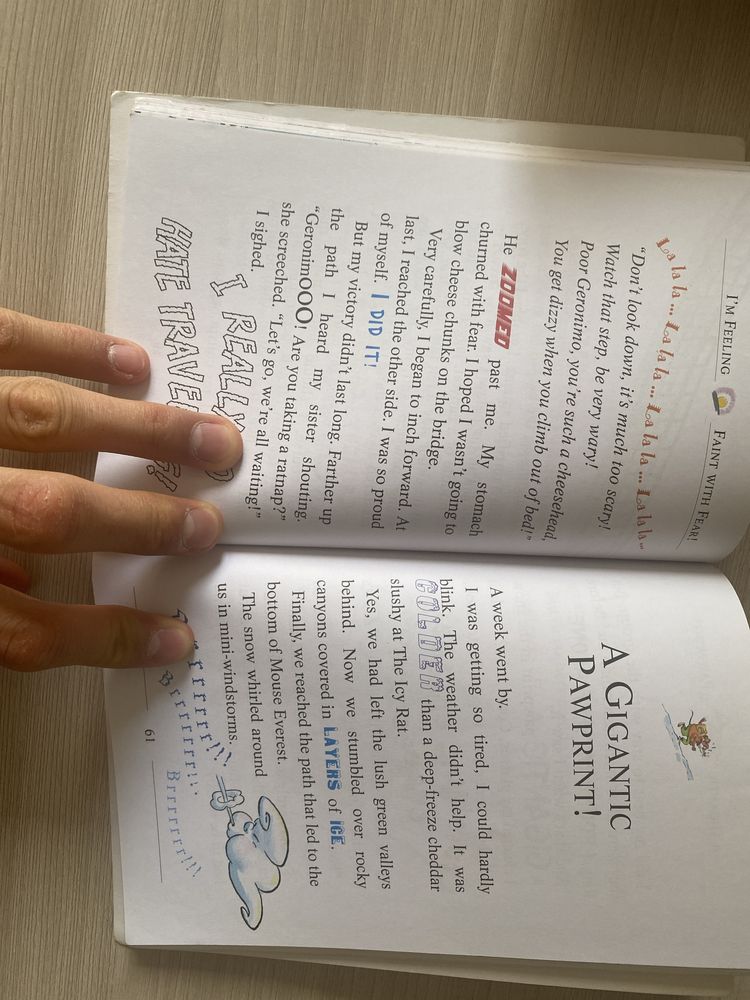 I'M FEELING FAINT WITH FEAR!
La la la... La la la... La la la... La la la...
"Don't look down, it's much too scary!
Watch that step, be very wary!
Poor Geronimo, you're such a cheesehead,
You get dizzy when you climb out of bed!"
He ZOOMED past me. My stomach
churned with fear. I hoped I wasn't going to
blow cheese chunks on the bridge.
Very carefully, I began to inch forward. At
last, I reached the other side. I was so proud
of myself. I DID IT!
But my victory didn't last long. Farther up
the path I heard my sister shouting.
"GeronimOOO! Are you taking a ratnap?"
she screeched. "Let's go, we're all waiting!"
I sighed.
I REALLY
HATE
A GIGANTIC
PAWPRINT!
A week went by.
I was getting so tired, I could hardly
blink. The weather didn't help. It was
COLDER than a deep-freeze cheddar
slushy at The Icy Rat.
Yes, we had left the lush green valleys
behind. Now we stumbled over rocky
canyons covered in LAYERS of ICE.
Finally, we reached the path that led to the
bottom of Mouse Everest.
The snow whirled around
us in mini-windstorms.
Brrrrrrr!!!
61